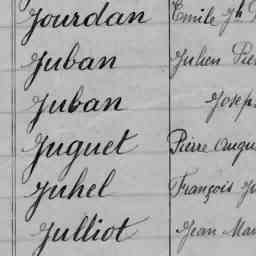 Jourdan Emile Jh
Juban Julien Pie
Juban Joseph
Juguet Pierre Augu
Juhel François
Julliot Jean Mar